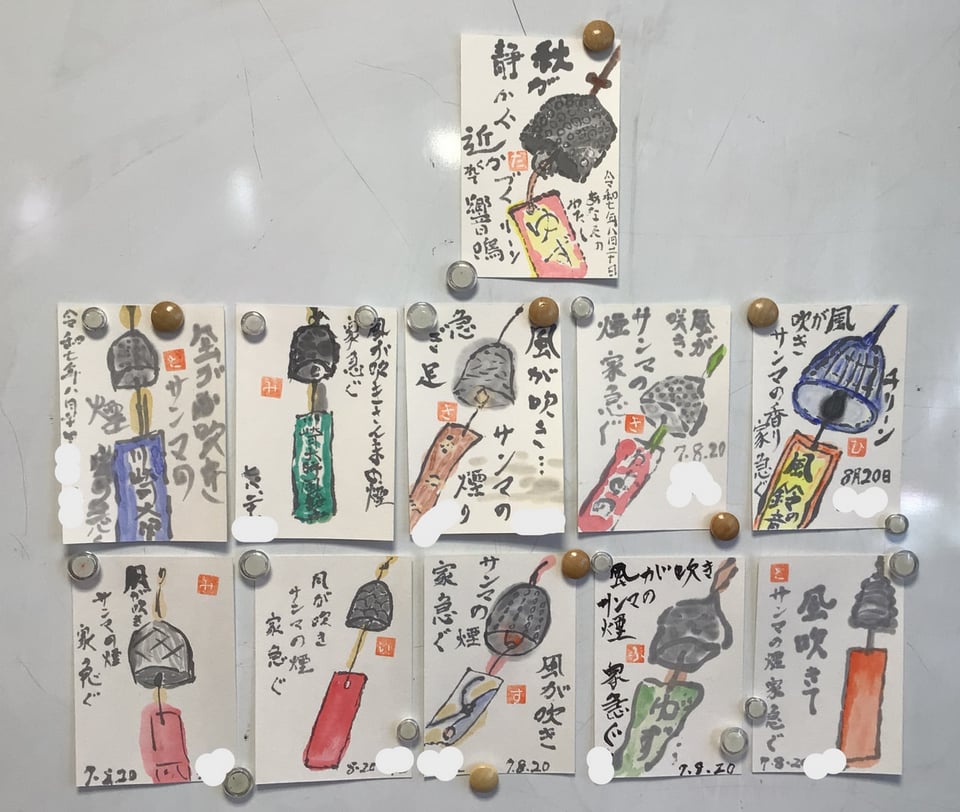 秋が
静かに
近づく
響鳴
リーン
令和七年八月二十日
あなたの
わたし
ゆず
だ
風が吹き
サンマの
煙
家急ぐ
と
風が吹きさんまの煙
家急ぐ
み
風が吹き…
サンマの
煙り
急ぎ足
さ
風が
吹き
サンマの
煙 家急ぐ
さ
7.8.20
風が
吹き
サンマの香り
家急ぐ
チリーン
ひ
8月20日
風鈴の音
み
風が吹き
サンマの煙
家急ぐ
7.8.20
風が吹き
サンマの煙
家急ぐ
い
8.20
サンマの煙
家急ぐ
風が吹き
す
7.8.20
風が吹き
サンマの
煙
家急ぐ
ふ
ゆず
7.8.20
と
風吹きて
サンマの煙家急ぐ
7.8.2